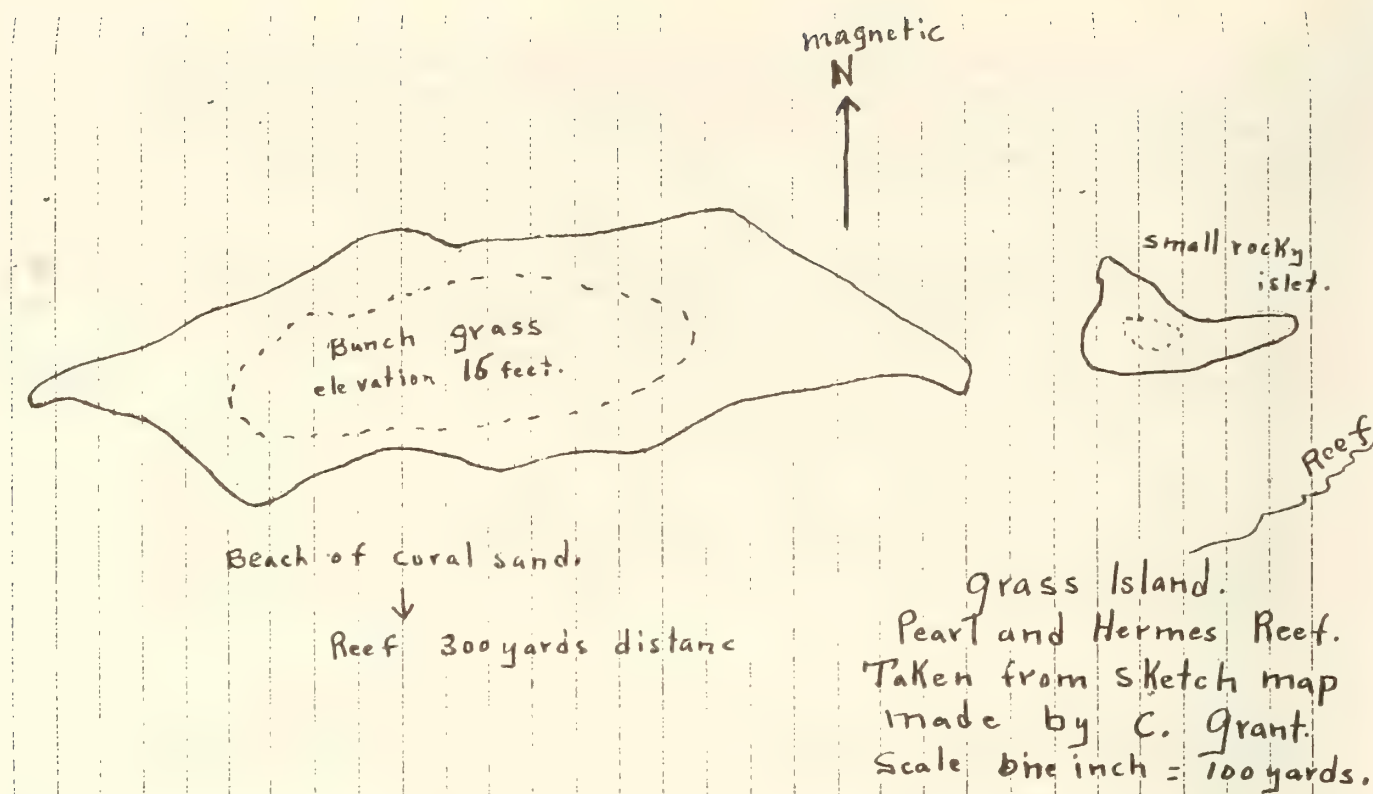 magnetic
N
small rocky
islet.
Bunch grass
elevation 16 feet.
Reef
Beach of coral sand.
Reef 300 yards distanc
Grass Island.
Pearl and Hermes Reef.
Taken from sketch map
made by C. Grant.
Scale one inch = 100 yards.